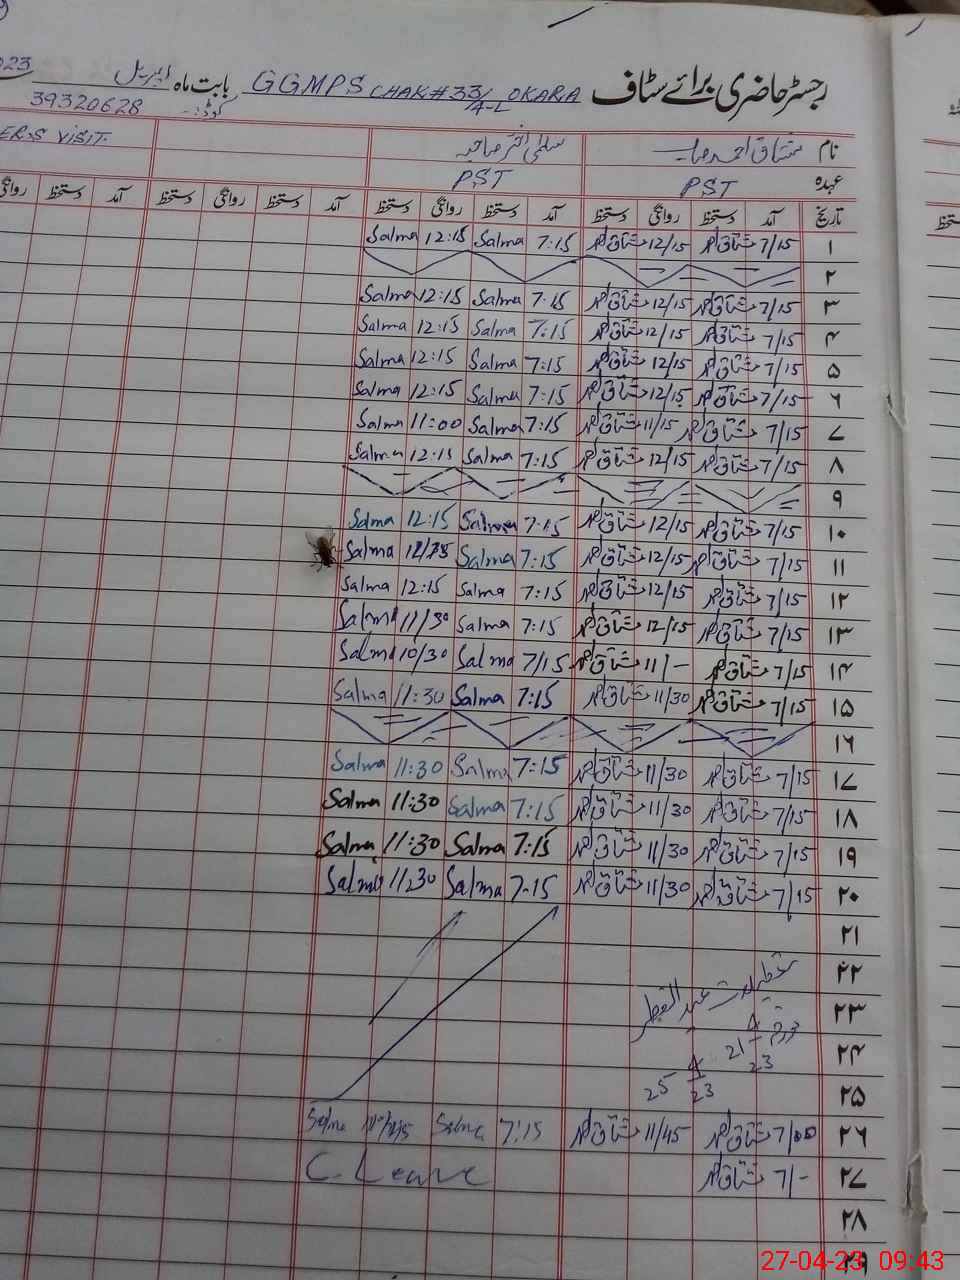 رجسٹر حاضری برائے سٹاف GGMPS CHAK # 33/4-L OKARA بابت ماہ اپریل 023
کوڈ:- 39320628
نام مشتاق احمد صاحب سلمیٰ اختر صاحبہ ER.S VISIT.
عہدہ PST PST
تاریخ آمد دستخط روانگی دستخط آمد دستخط روانگی دستخط آمد دستخط روانگی دستخط آمد دستخط روانگی
۱ 7/15 مشتاق 12/15 مشتاق 7:15 Salma 12:15 Salma
۲
۳ 7/15 مشتاق 12/15 مشتاق 7:15 Salma 12:15 Salma
۴ 7/15 مشتاق 12/15 مشتاق 7:15 Salma 12:15 Salma
۵ 7/15 مشتاق 12/15 مشتاق 7:15 Salma 12:15 Salma
۶ 7/15 مشتاق 12/15 مشتاق 7:15 Salma 12:15 Salma
۷ 7/15 مشتاق 11/15 مشتاق 7:15 Salma 11:00 Salma
۸ 7/15 مشتاق 12/15 مشتاق 7:15 Salma 12:15 Salma
۹
۱۰ 7/15 مشتاق 12/15 مشتاق 7:15 Salma 12:15 Salma
۱۱ 7/15 مشتاق 12/15 مشتاق 7:15 Salma Salma
۱۲ 7/15 مشتاق 12/15 مشتاق 7:15 Salma 12:15 Salma
۱۳ 7/15 مشتاق 12/15 مشتاق 7:15 Salma 11/30 Salma
۱۴ 7/15 مشتاق 11/- مشتاق 7/15 Salma 10/30 Salma
۱۵ 7/15 مشتاق 11/30 مشتاق 7:15 Salma 11:30 Salma
۱۶
۱۷ 7/15 مشتاق 11/30 مشتاق 7:15 Salma 11:30 Salma
۱۸ 7/15 مشتاق 11/30 مشتاق 7:15 Salma 11:30 Salma
۱۹ 7/15 مشتاق 11/30 مشتاق 7:15 Salma 11:30 Salma
۲۰ 7/15 مشتاق 11/30 مشتاق 7-15 Salma 11:30 Salma
۲۱
۲۲ تعطیلات عید الفطر
۲۳ مورخہ 21-4/23
۲۴ 25 4/23
۲۵
۲۶ 7/00 مشتاق 11/45 مشتاق 7:15 Salma Salma
۲۷ 7/- مشتاق C. Leave
۲۸
۲۹
27-04-23 09:43